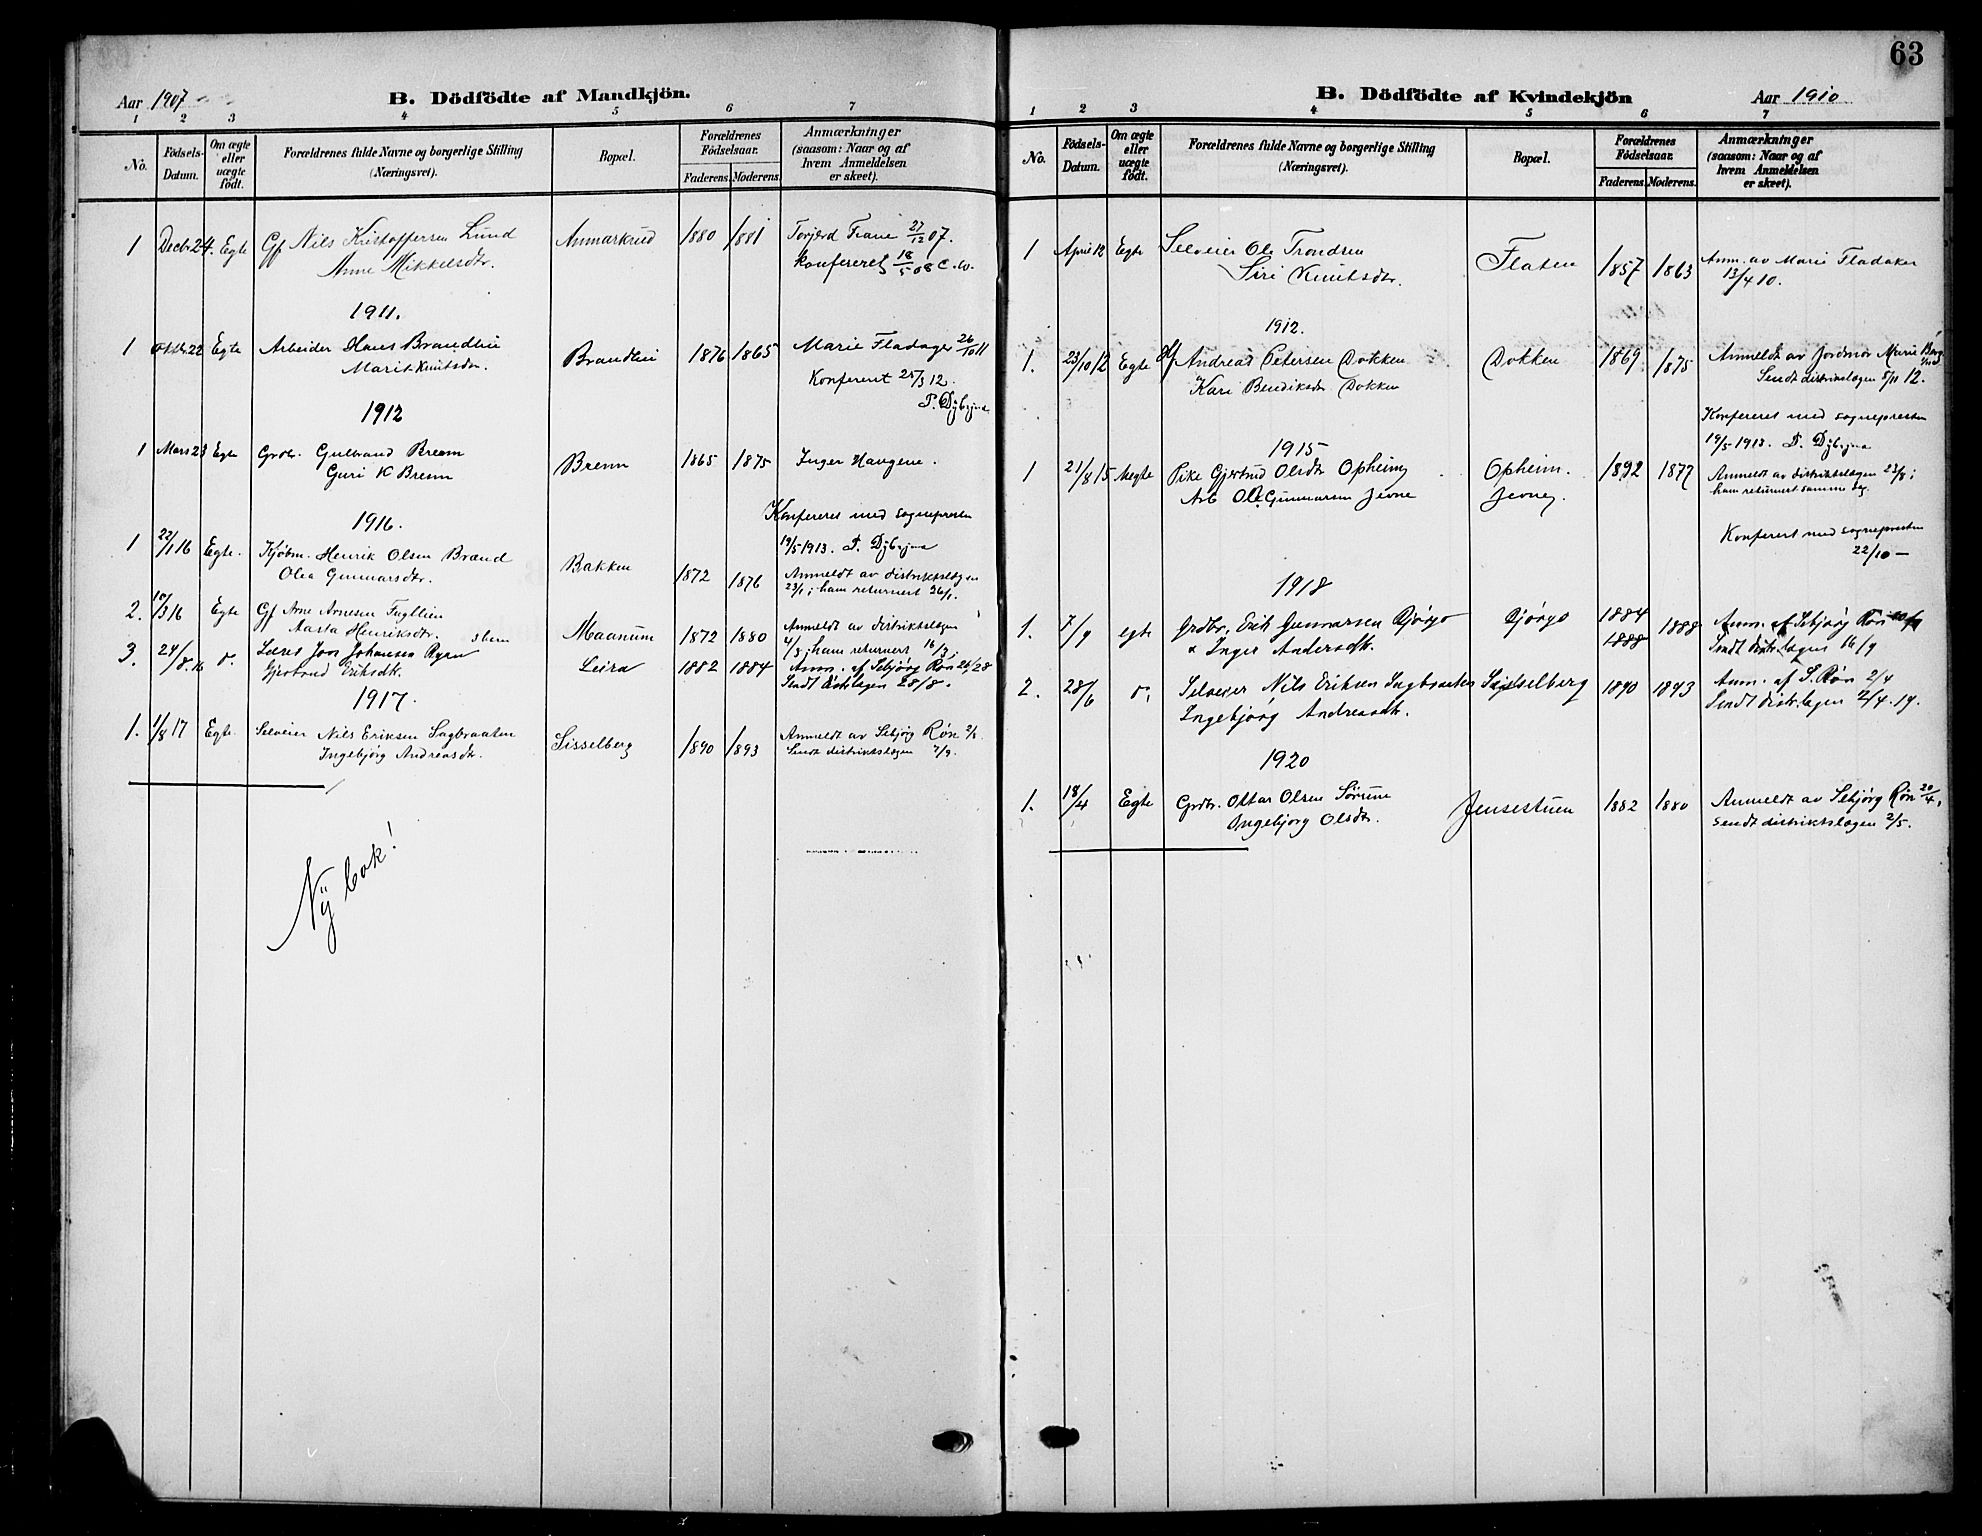 Aar 1907
B. Dödfödte af Mandkjön.
1 2 3 4 5 6 7
No.
Födsels-Datum.
Om ægte eller uægte födt.
Forældrenes fulde Navne og borgerlige Stilling
(Næringsvei).
Bopæl.
Forældrenes Födselsaar.
Faderens. Moderens.
Anmærkninger
(saasom: Naar og af
hvem Anmeldelsen
er skeet).
1 Decbr 24. Egte Gf Nils Kristoffersen Lund Anmarkrud 1880 1881 27/12 07.
Anne Mikkelsdtr. konfereret 18/5 08
1911.
1 Oktbr. 22 Egte Arbeider Hans Brandlie Brandlie 1876 1865 Marie Fladager 26/10 11
Marit Knutsdtr. Konfereret 25/3 12.
1912
1 Mars 23 Egte Grdbr. Gulbrand Brenn Brenn 1865 1875 Inger Haugene.
Guri K Brenn
Konfereret med sognepresten
19/5 1913.
1916.
1 22/1 16 Egte. Kjøbm. Henrik Olsen Brænd Bakken 1872 1876 Anmeldt av distriktslægen
Olea Gunnarsdtr. 23/1; ham returnert 26/1.
2. 3 16 Egte Gf Arne Arnesen Fuglien Maanum 1872 1880 Anmeldt av distriktslægen
Aasta Henriksdtr. 4/3; ham returnert 16/3;
3. 24/8.16 Jon Johansen Leira 1882 1884 Anm. af Sebjörg Røn
Gjertrud Eriksdtr. Sendt distr.lægen 28/8.
1917.
1. 1/8 17 Egte. Selveier Nils Eriksen Sagbraaten Sisselberg 1890 1893 Anmeldt av Sebjørg Røn
Ingebjørg Andreasdtr. Sendt distriktslægen 7/9.
Ny bok!
63
B. Dödfödte af Kvindekjön
Aar 1910
1 2 3 4 5 6 7
No.
Födsels-Datum.
Om ægte eller uægte födt.
Forældrenes fulde Navne og borgerlige Stilling
(Næringsvei).
Bopæl.
Forældrenes Födselsaar.
Faderens. Moderens.
Anmærkninger
(saasom: Naar og af
hvem Anmeldelsen
er skeet).
1 April 12 Egte Selveier Ole Trondsen Flaten 1857 1863 Anm. av Marie Fladaker
Siri Knutsdtr. 13/4 10.
1912.
1. 23/10 12 Egte Gf Andreas Petersen Dokken Dokken 1869 1875 Anmeldt av Jordmor Marie
Kari Bendiksdtr Dokken Sendt distriktslægen 5/11 12.
Konfereret med sognepresten
19/5 1913.
1915
1 21/8 15 Uegte Pike Gjertrud Olsdtr Opheim Opheim. 1892 1877 Anmeldt av distriktslægen 23/8;
Arb Ole Gunnarsen Jevne Jevne ham returnert samme dag.
Konferert med sognepresten
22/10 —
1918
1. 7/9 egte Grdbr. Erik Gunnarsen Bjørgo Bjørgo 1884 1888 1888 Anm. af Sebjørg Røn
& Inger Andersdtr. Sendt distr.lægen 16/9
2. 28/6 Selveier Nils Eriksen Sagbraaten Sisselberg 1890 1893 Anm. af S. Røn 2/4
Ingebjørg Andreasdtr. Sendt distr.lægen 2/4.19.
1920
1. 18/4 Egte Grdbr. Ottar Olsen Sørum Jensestuen 1882 1880 Anmeldt av Sebjørg Røn 20/4,
Ingebjørg Olsdtr. sendt distriktslægen 2/5.